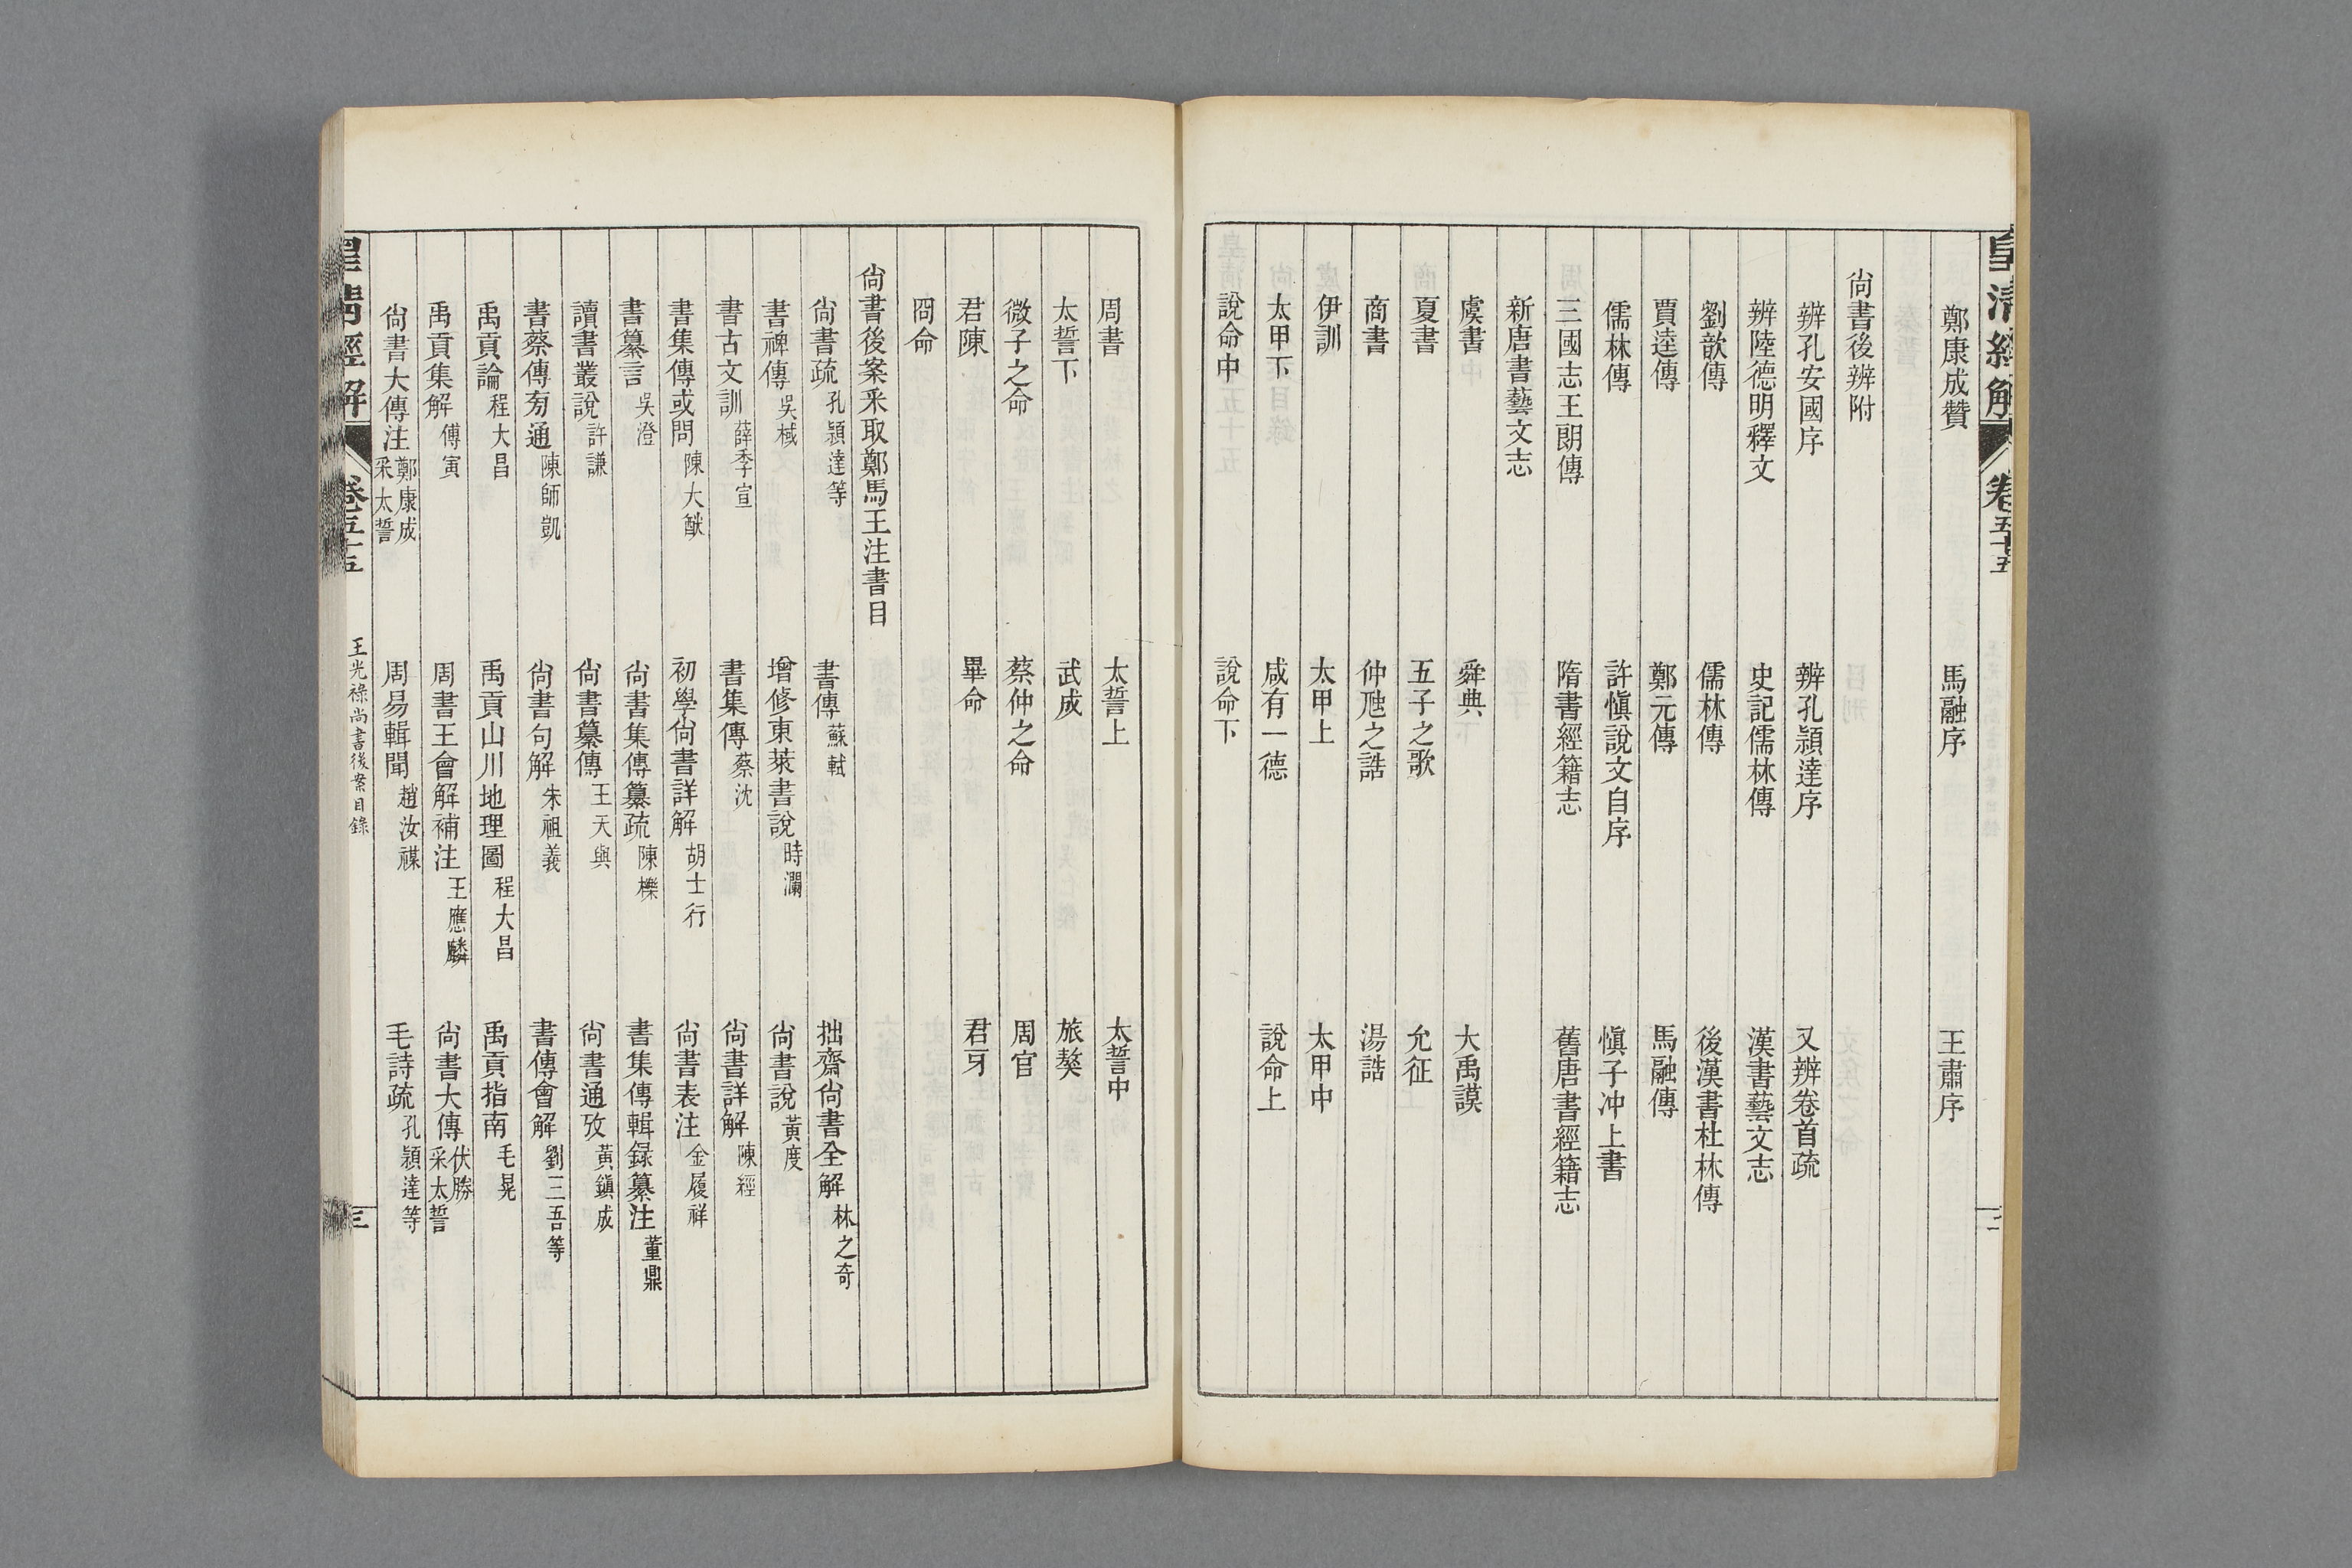 皇清經解 卷五十五
鄭康成贊 馬融序 王肅序
尙書後辨附
辨孔安國序 辨孔穎達序 又辨卷首疏
辨陸德明釋文 史記儒林傳 漢書藝文志
劉歆傳 儒林傳 後漢書杜林傳
賈逵傳 鄭元傳 馬融傳
儒林傳 許愼說文自序 愼子冲上書
三國志王朗傳 隋書經籍志 舊唐書經籍志
新唐書藝文志
虞書 舜典 大禹謨
夏書 五子之歌 允征
商書 仲虺之誥 湯誥
伊訓 太甲上 太甲中
太甲下 咸有一德 說命上
說命中 說命下
周書 太誓上 太誓中
太誓下 武成 旅獒
微子之命 蔡仲之命 周官
君陳 畢命 君牙
冏命
尙書後案釆取鄭馬王注書目
尙書疏孔穎達等 書傳蘇軾 拙齋尙書全解林之奇
書裨傳吳棫 增修東萊書說時瀾 尙書說黃度
書古文訓薛季宣 書集傳蔡沈 尙書詳解陳經
書集傳或問陳大猷 初學尙書詳解胡士行 尙書表注金履祥
書纂言吳澄 尙書集傳纂疏陳櫟 書集傳輯録纂注董鼎
讀書叢說許謙 尙書纂傳王天與 尙書通攷黃鎭成
書蔡傳旁通陳師凱 尙書句解朱祖義 書傳會解劉三吾等
禹貢論程大昌 禹貢山川地理圖程大昌 禹貢指南毛晃
禹貢集解傅寅 周書王會解補注王應麟 尙書大傳伏勝采太誓
尙書大傳注鄭康成采太誓 周易輯聞趙汝楳 毛詩疏孔穎達等
皇淸經解 卷五十五 王光祿尚書後案目錄 三